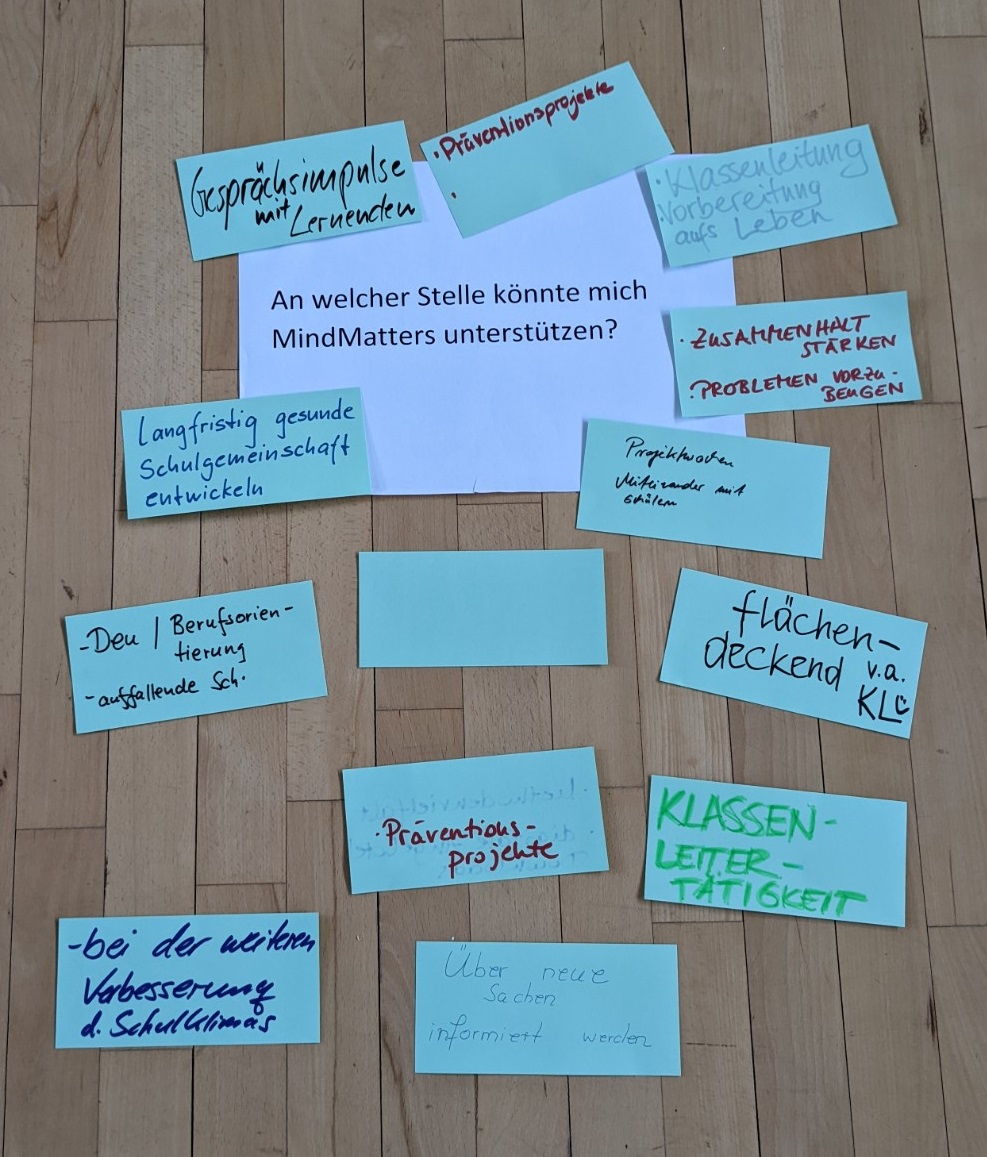 Gesprächsimpulse
mit Lernenden
· Präventionsprojekte
·
· Klassenleitung
· Vorbereitung
aufs Leben
An welcher Stelle könnte mich
MindMatters unterstützen?
· ZUSAMMENHALT
STÄRKEN
· PROBLEMEN VORZU-
BEUGEN
Langfristig gesunde
Schulgemeinschaft
entwickeln
Projektwochen
Miteinander mit
Schülern
- Deu / Berufsorien-
tierung
- auffallende Sch.
flächen-
deckend v.a.
KL
· Präventions-
projekte
KLASSEN-
LEITER-
TÄTIGKEIT
- bei der weiteren
Verbesserung
d. Schulklimas
Über neue
Sachen
informiert werden